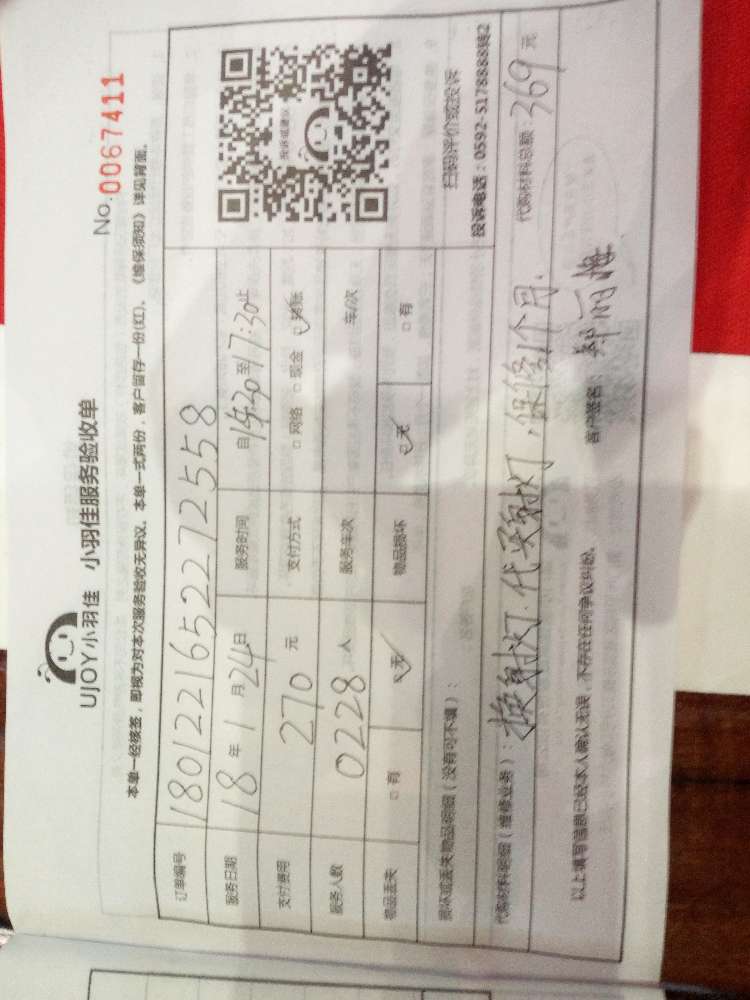 UJOY小羽佳 小羽佳服务验收单
No. 0067411
本单一经核签，即视为对本次服务验收无异议。本单一式两份，客户留存一份(红)。《维保须知》详见背面。
订单编号 180122165227 2558
服务日期 18 年 1 月 24 日 服务时间 自 至 17:30 止
支付费用 270 元 支付方式 □ 网络 □ 现金 ☑ 转账
服务人数 0228 人 服务车次 车/次
物品丢失 □ 有 ☑ 无 物品损坏 ☑ 无 □ 有
投诉或建议
扫码评价或投诉
投诉电话：0592-5178888转2
损坏或丢失物品明细（没有可不填）：
代购材料明细（维修业务）：换射灯.代买射灯，保修1个月.
代购材料总额：369 元
以上填写信息已经本人确认无误，不存在任何争议纠纷。 客户签名：郑丽梅